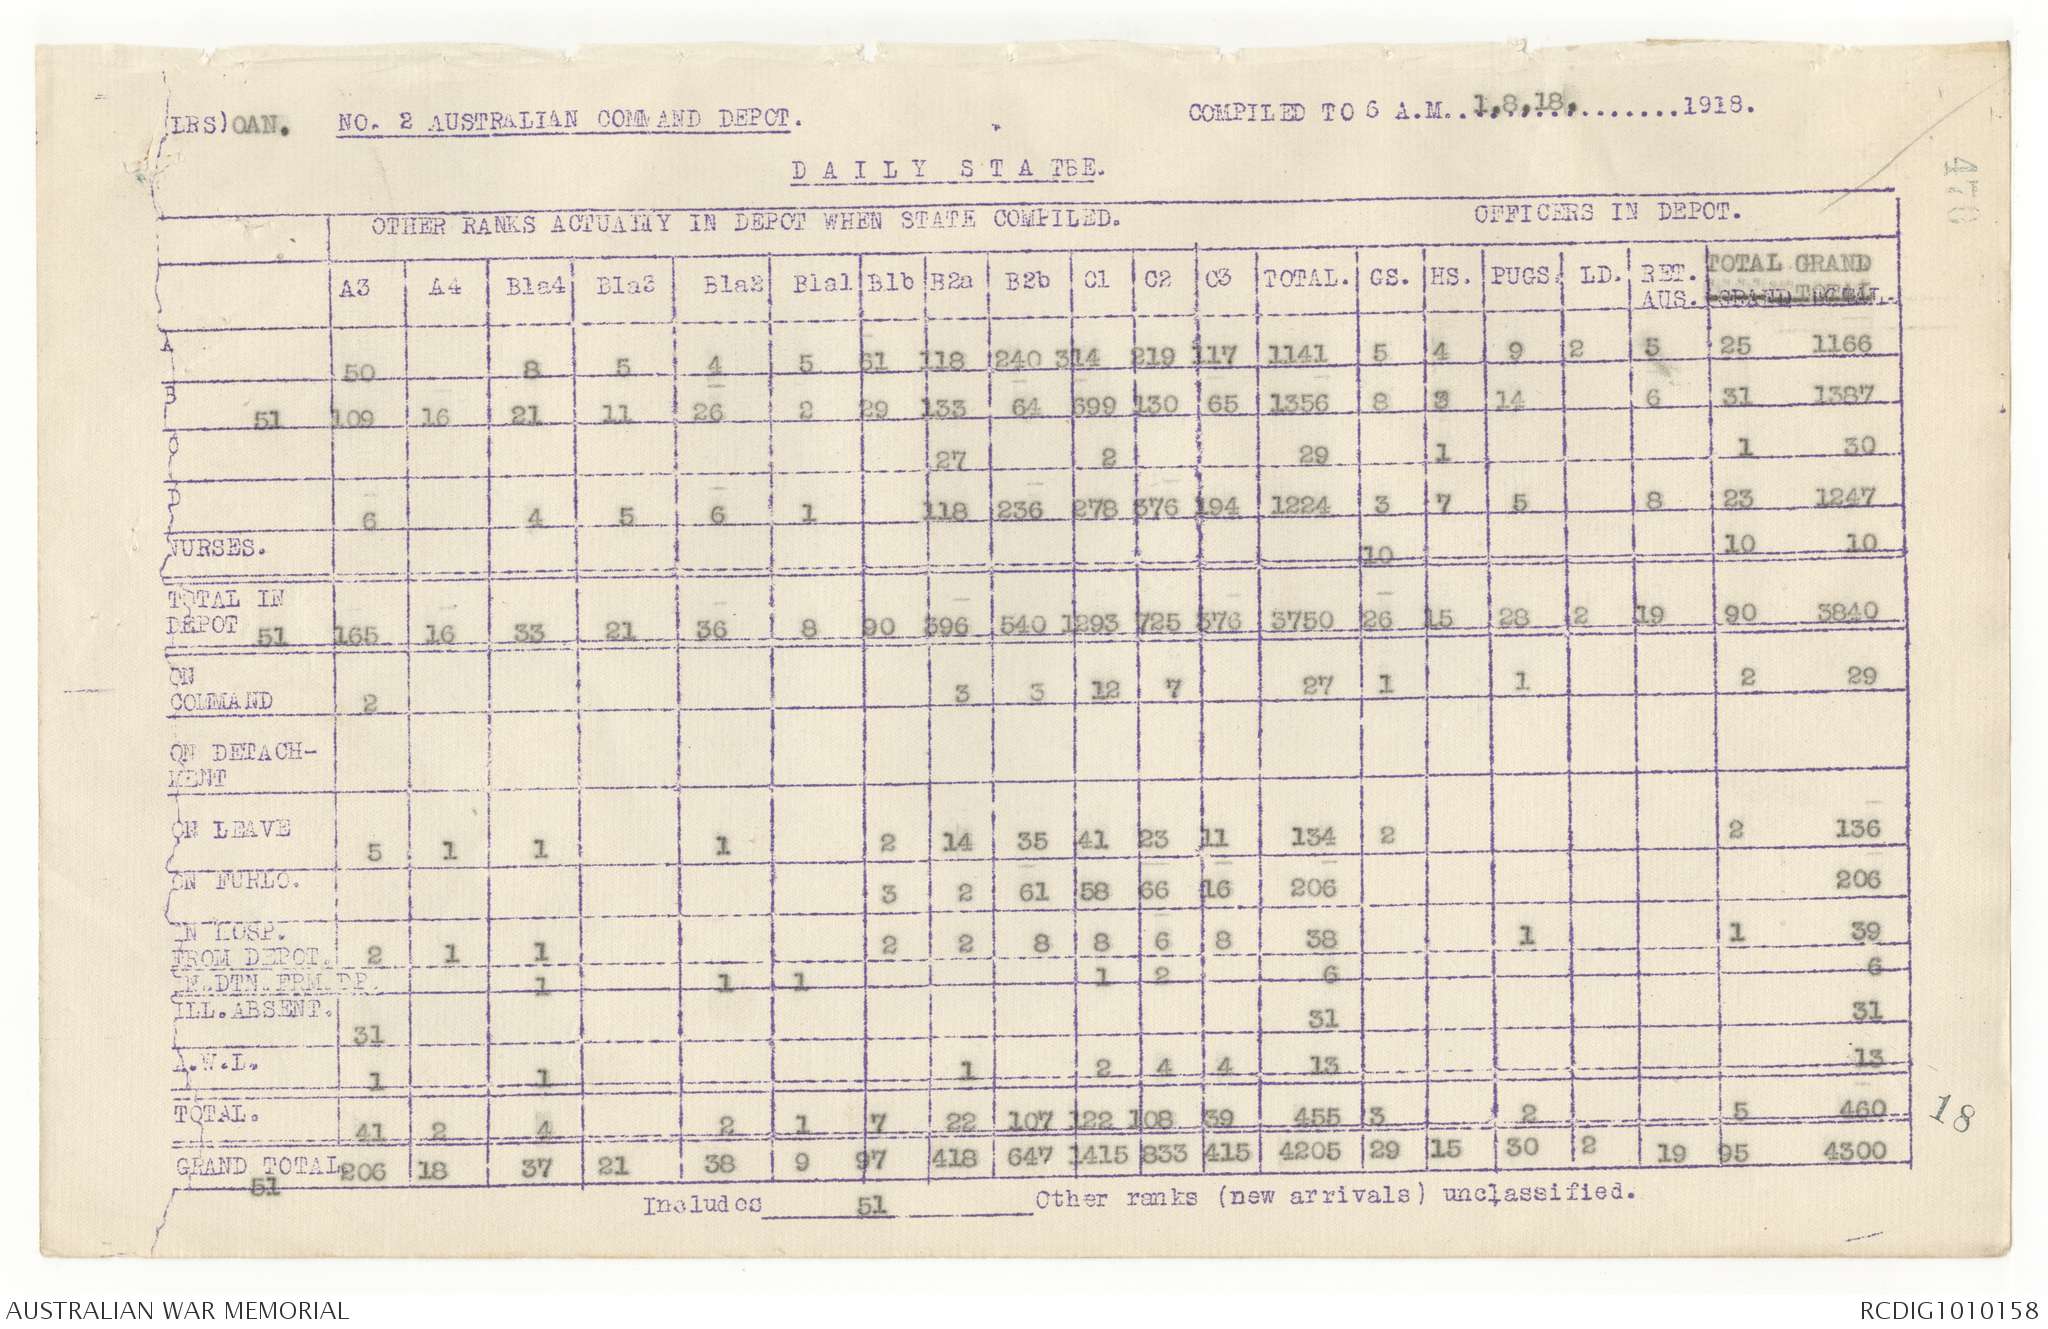 (LRS)OAN. NO. 2 AUSTRALIAN COMMAND DEPOT. COMPILED TO 6 A.M..1,8,18,.......1918.
DAILY STATE.
OTHER RANKS ACTUALLY IN DEPOT WHEN STATE COMPILED. OFFICERS IN DEPOT.
A3 A4 B1a4 B1a3 B1a2 B1a1 B1b B2a B2b C1 C2 C3 TOTAL. GS. HS. PUGS. LD. RET. AUS. TOTAL GRAND TOTAL
A 50 8 5 4 5 61 118 240 314 219 117 1141 5 4 9 2 5 25 1166
B 51 109 16 21 11 26 2 29 133 64 699 130 65 1356 8 3 14 6 31 1387
C 27 2 29 1 1 30
D 6 4 5 6 1 118 236 278 376 194 1224 3 7 5 8 23 1247
NURSES. 10 10 10
TOTAL IN
DEPOT 51 165 16 33 21 36 8 90 396 540 1293 725 376 3750 26 15 28 2 19 90 3840
ON
COMMAND 2 3 3 12 7 27 1 1 2 29
ON DETACH-
MENT
ON LEAVE 5 1 1 1 2 14 35 41 23 11 134 2 2 136
ON FURLO. 3 2 61 58 66 16 206 206
IN HOSP.
FROM DEPOT. 2 1 1 2 2 8 8 6 8 38 1 1 39
IN.DTN.FRM.DP. 1 1 1 1 2 6 6
ILL.ABSENT. 31 31 31
A.W.L. 1 1 1 2 4 4 13 13
TOTAL. 41 2 4 2 1 7 22 107 122 108 39 455 3 2 5 460
GRAND TOTAL 51 206 18 37 21 38 9 97 418 647 1415 833 415 4205 29 15 30 2 19 95 4300
Includes 51 Other ranks (new arrivals) unclassified.
18
AUSTRALIAN WAR MEMORIAL RCDIG1010158